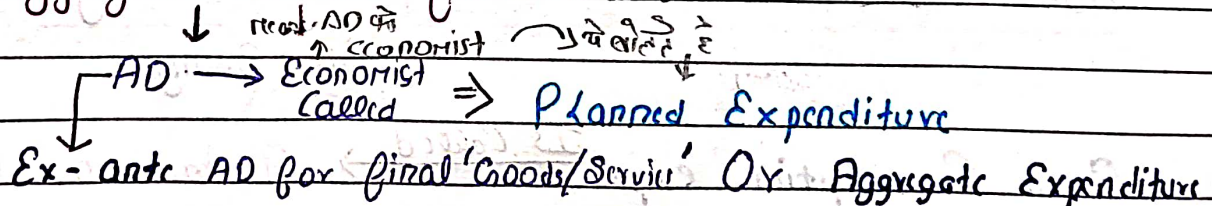 AD को
↑ economist ये बोलते है
AD → Economist Called ⇒ Planned Expenditure
Ex-ante AD for final 'Goods/Servies' Or Aggregate Expenditure